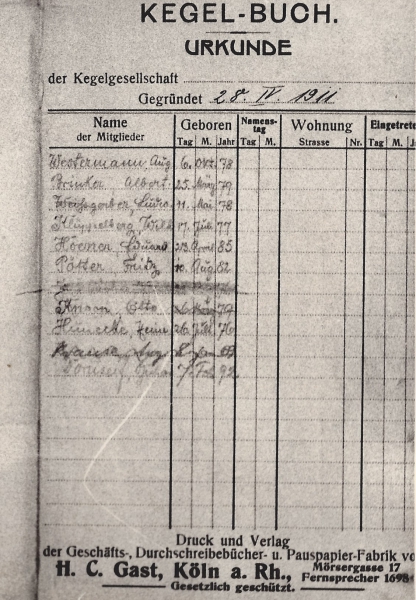 KEGEL-BUCH.
URKUNDE
der Kegelgesellschaft
Gegründet 28. IV. 1911
Name
der Mitglieder
Geboren
Tag M. Jahr
Namens-
tag
Tag M.
Wohnung
Strasse Nr.
Eingetrete
Tag M. J
Westermann Aug. 6. Okt. 78
Brinker Albert 25. März 79
11. Mai 78
17. Juli 77
Hoener Eduard 23. April 85
Pötter Fritz 10. Aug. 82
Otto März 79
26. Juli 76
7. Feb. 92
Druck und Verlag
der Geschäfts-, Durchschreibebücher- u. Pauspapier-Fabrik vo
H. C. Gast, Köln a. Rh., Mörsergasse 17
Fernsprecher 1698
Gesetzlich geschützt.